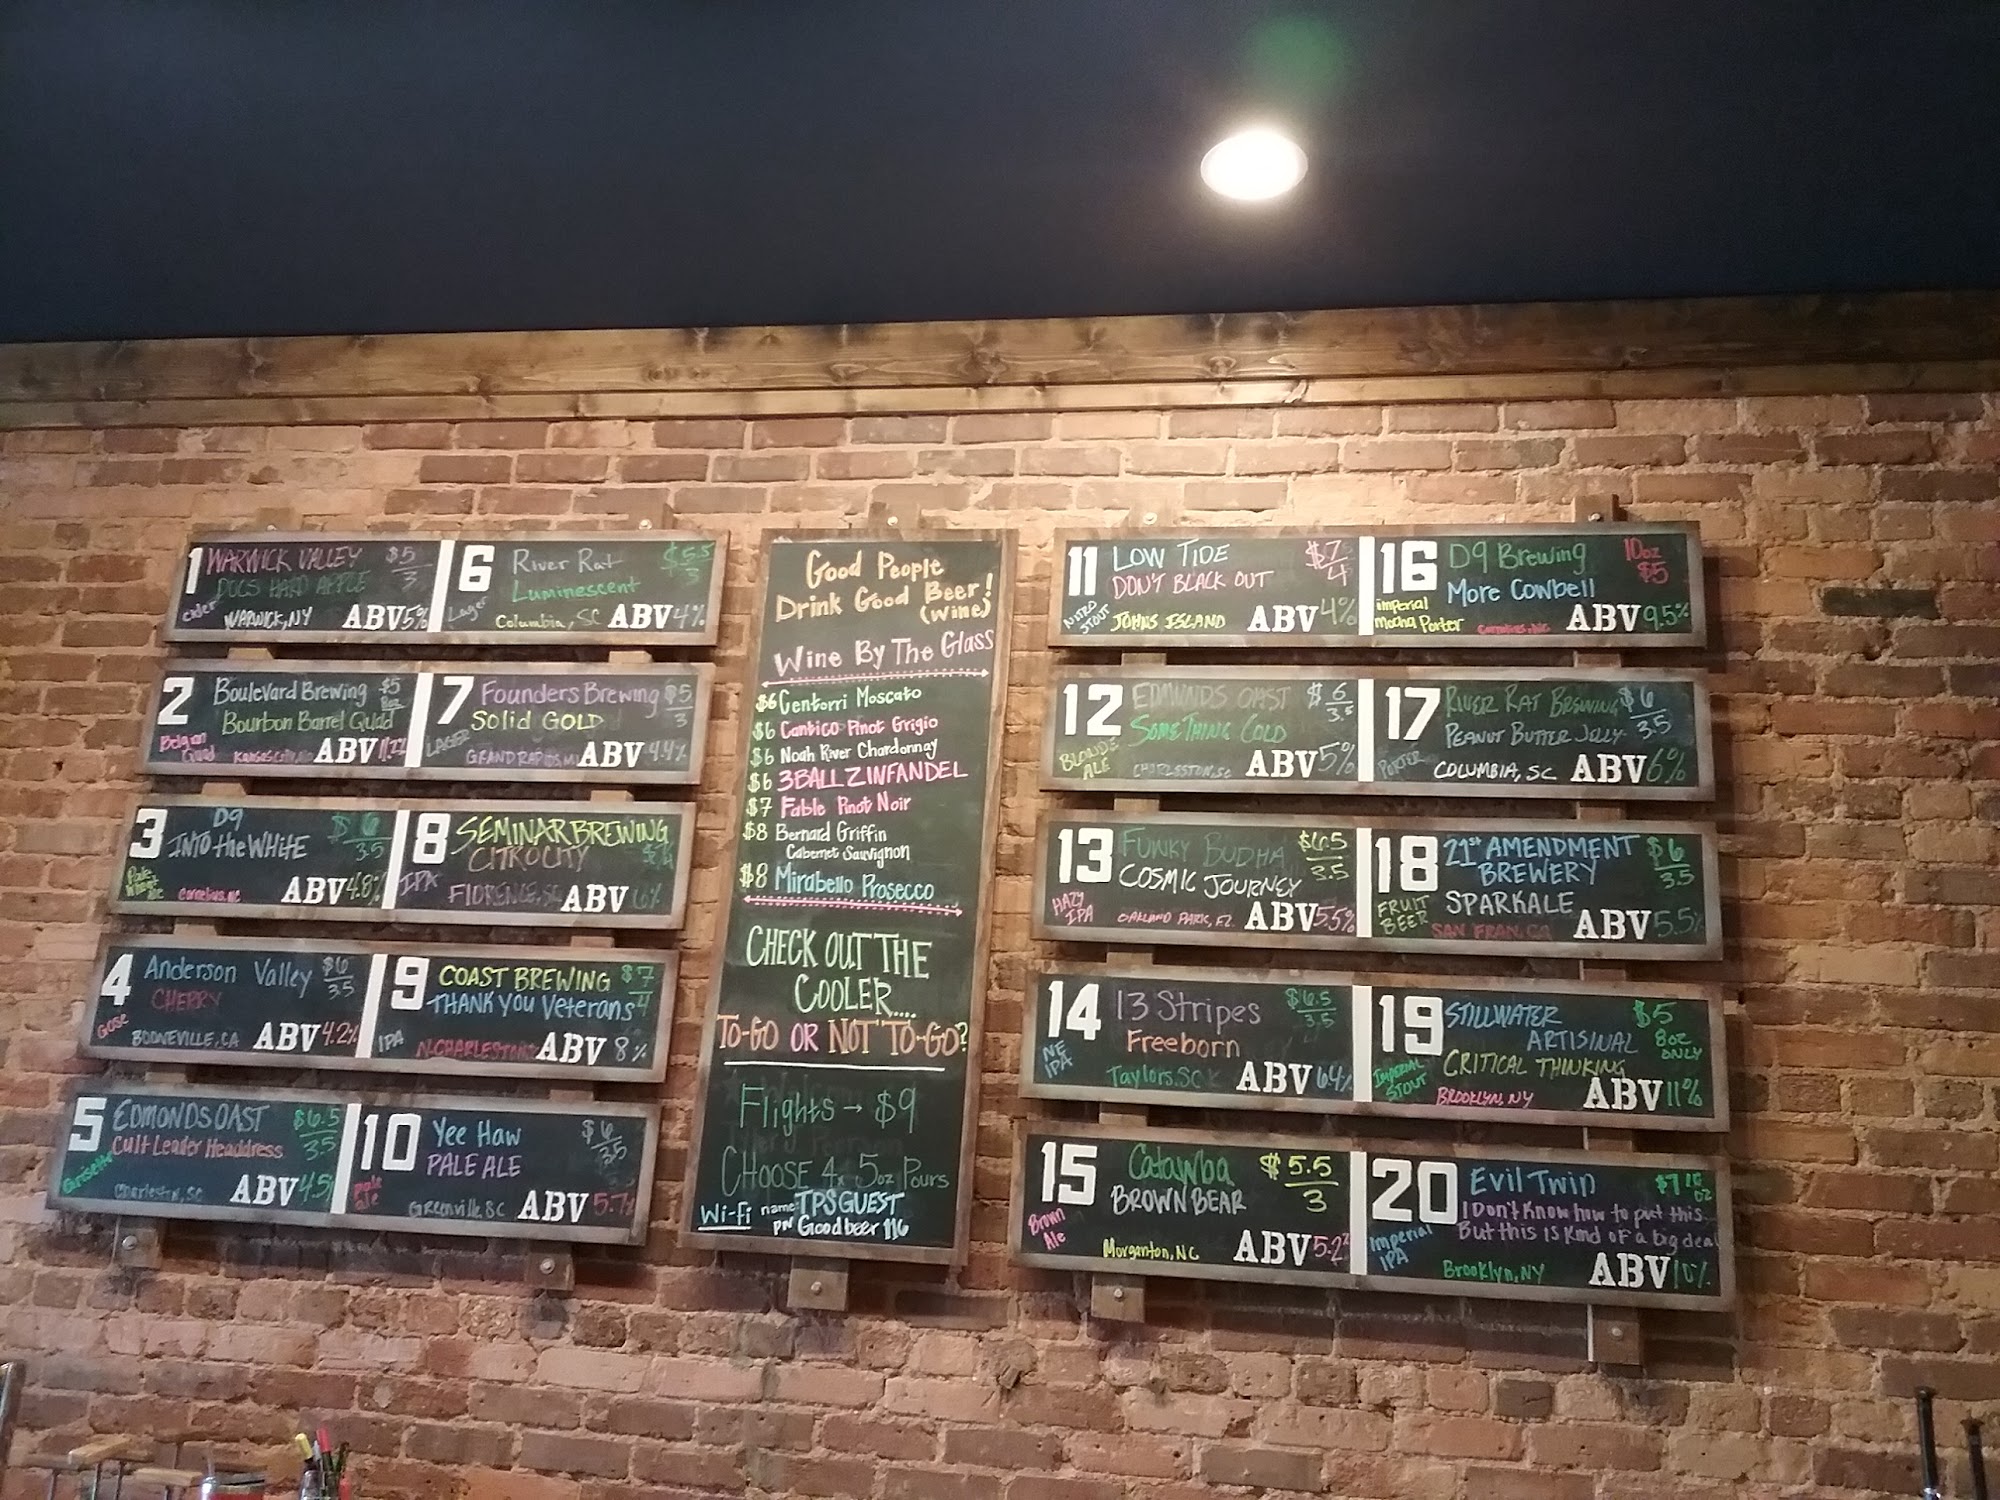 1 WARWICK VALLEY $5/3
DOCS HARD APPLE
cider WARWICK, NY ABV 5%
2 Boulevard Brewing $5 8oz
Bourbon Barrel Quad
Belgian Quad Kansas City, ABV
3 D9 $6/3.5
INTO the WHITE
Pale Wheat Ale Cornelius, NC ABV 4.8%
4 Anderson Valley $6/3.5
CHERRY
GOSE BOONEVILLE, CA ABV 4.2%
5 EDMONDS OAST $6.5/3.5
Cult Leader Headdress
Grisette Charleston, SC ABV 4.5%
6 River Rat $5.5/3
Luminescent
Lager Columbia, SC ABV 4%
7 Founders Brewing $5/3
Solid GOLD
LAGER GRAND RAPIDS, MI ABV 4.4%
8 SEMINAR BREWING
CITROCITY
IPA FLORENCE, SC ABV 6%
9 COAST BREWING $7/4
THANK YOU Veterans
IPA N. CHARLESTON ABV 8%
10 Yee Haw $6/3.5
PALE ALE
Pale ale Greenville, SC ABV 5.7%
Good People
Drink Good Beer!
(wine)
Wine By The Glass
$6 Centorri Moscato
$6 Cantico Pinot Grigio
$6 Noah River Chardonnay
$6 3 BALL ZINFANDEL
$7 Fable Pinot Noir
$8 Bernard Griffin
Cabernet Sauvignon
$8 Mirabello Prosecco
CHECK OUT THE
COOLER....
TO-GO OR NOT TO-GO?
Flights → $9
CHOOSE 4x 5oz Pours
Wi-fi name TPSGUEST
PW Goodbeer116
11 LOW TIDE $7/4
DON'T BLACK OUT
NITRO STOUT JOHNS ISLAND ABV 4%
12 EDMUNDS OAST $6/3.5
SOMETHING COLD
BLONDE ALE CHARLESTON, SC ABV 5%
13 FUNKY BUDHA $6.5/3.5
COSMIC JOURNEY
HAZY IPA OAKLAND PARK, FL ABV 5.5%
14 13 Stripes $6.5/3.5
Freeborn
NE IPA Taylors, SC ABV 6.4%
15 Catawba $5.5/3
BROWN BEAR
Brown Ale Morganton, NC ABV 5.2%
16 D9 Brewing 10oz $5
More Cowbell
imperial Mocha Porter Cornelius, NC ABV 9.5%
17 RIVER RAT BREWING $6/3.5
PEANUT BUTTER JELLY
PORTER COLUMBIA, SC ABV 6%
18 21st AMENDMENT $6/3.5
BREWERY
SPARKALE
FRUIT BEER SAN FRAN, CA ABV 5.5%
19 STILLWATER $5
ARTISINAL 8oz ONLY
CRITICAL THINKING
IMPERIAL STOUT BROOKLYN, NY ABV 11%
20 Evil Twin $7 10 oz
I Don't Know how to put this
But this is kind of a big deal
Imperial IPA Brooklyn, NY ABV 10%